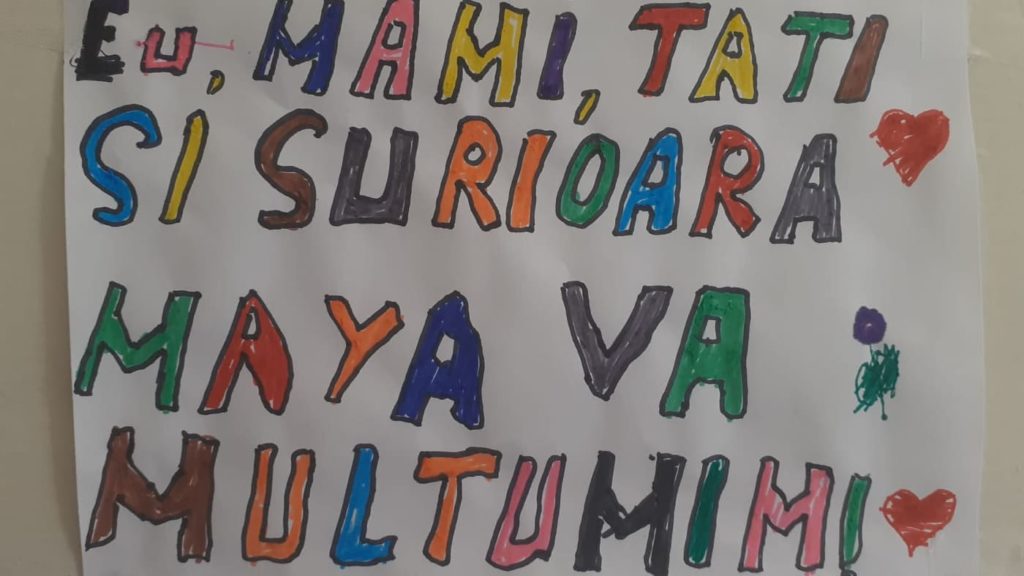 Eu, MAMI, TATI
SI SURIOARA
MAYA VA
MULTUMIM!